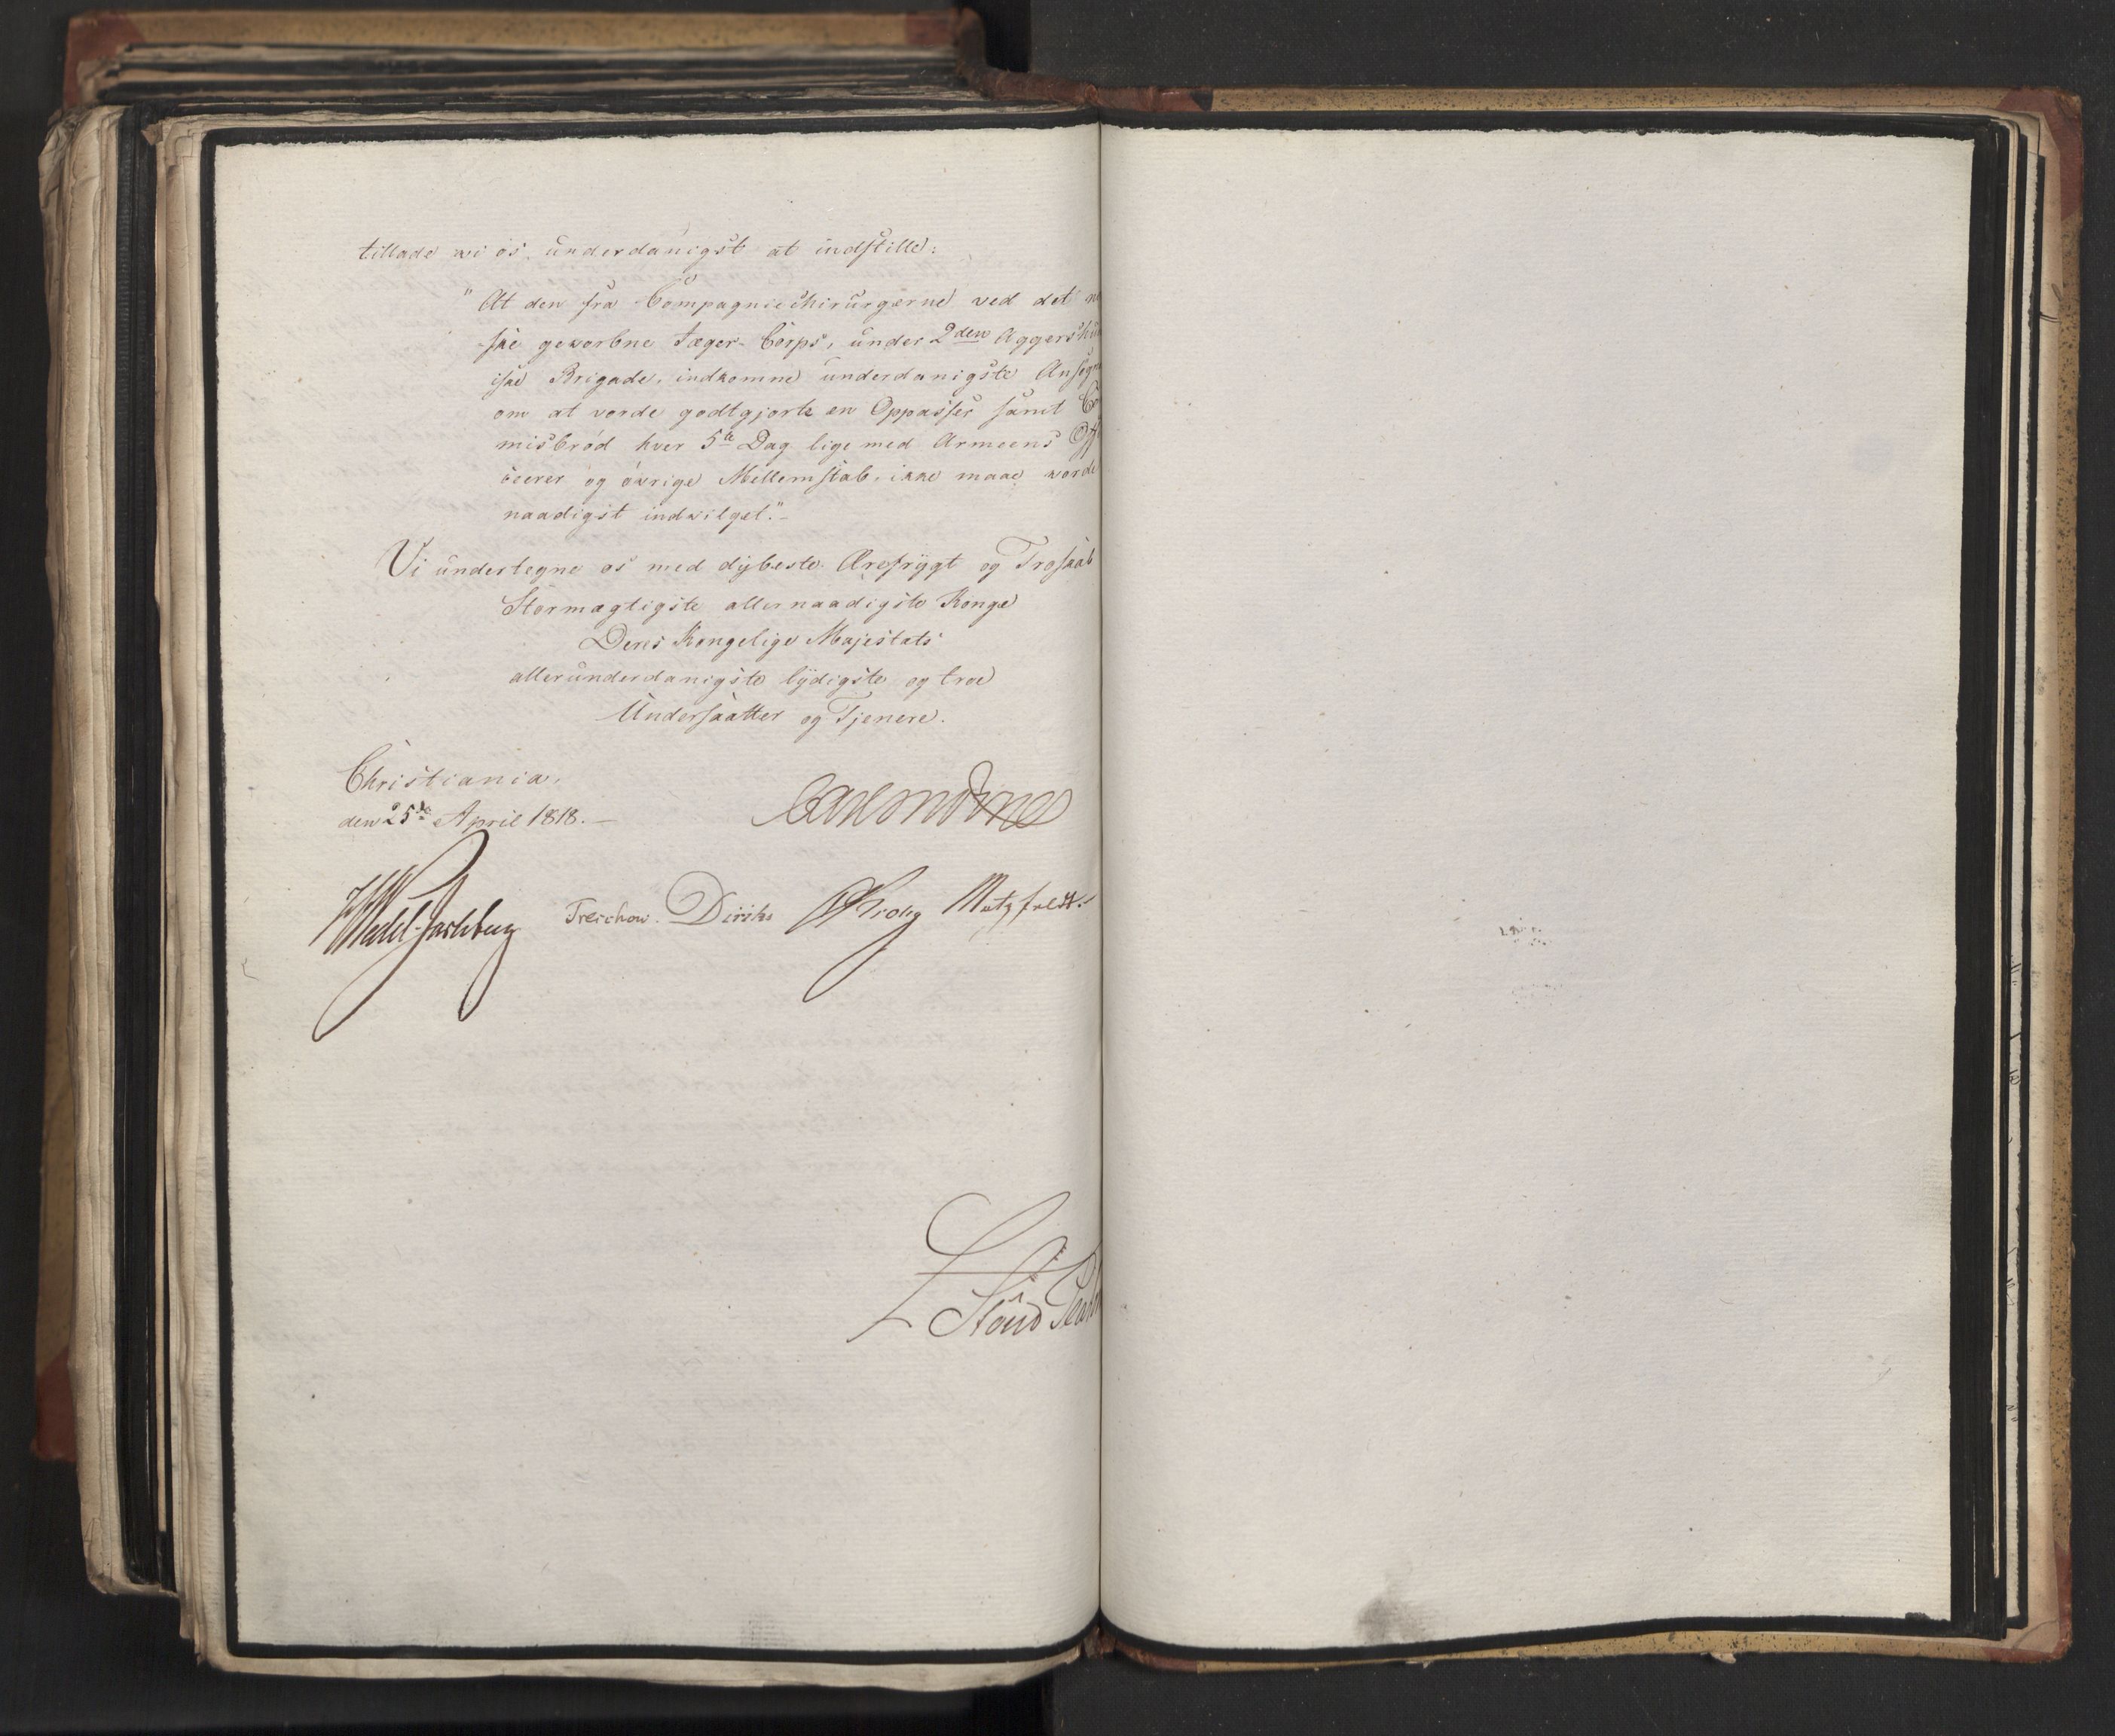 tillade wi os, underdanigst at indstille:
"At den fra Compagniechirurgerne ved det no
ske geworbne Jæger-Corps, under 2den Aggershuu
iske Brigade, indkomne underdanigste Ansøgn
om at vorde godtgjorte en Oppasser samt Co
misbrød hver 5te Dag lige med Armeens Offi
ceerer og øvrige Mellemstab, ikke maae worde
naadigst indwilget."
Vi undertegne os med dybeste Ærefrygt og Troskab
Stormægtigste allernaadigste Konge
Deres Kongelige Majestæts
allerunderdanigste lydigste og troe
Undersaatter og Tjenere.
Christiania,
den 25de April 1818.
Carl Mörner
Wedel-Jarlsberg Treschow. Diriks Krohg Motzfeldt.
Stoud Plat